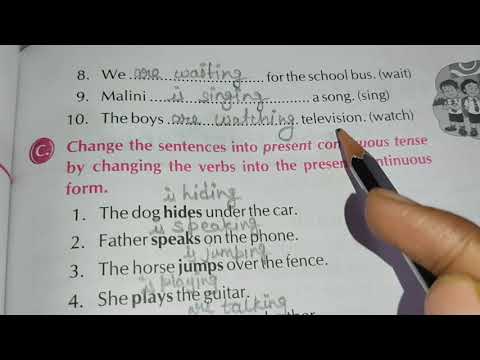 8. We are waiting for the school bus. (wait)
9. Malini is singing a song. (sing)
10. The boys are watching television. (watch)
C. Change the sentences into present continuous tense
by changing the verbs into the present continuous
form.
is hiding
1. The dog hides under the car.
is speaking
2. Father speaks on the phone.
is jumping
3. The horse jumps over the fence.
is playing
4. She plays the guitar.
are talking